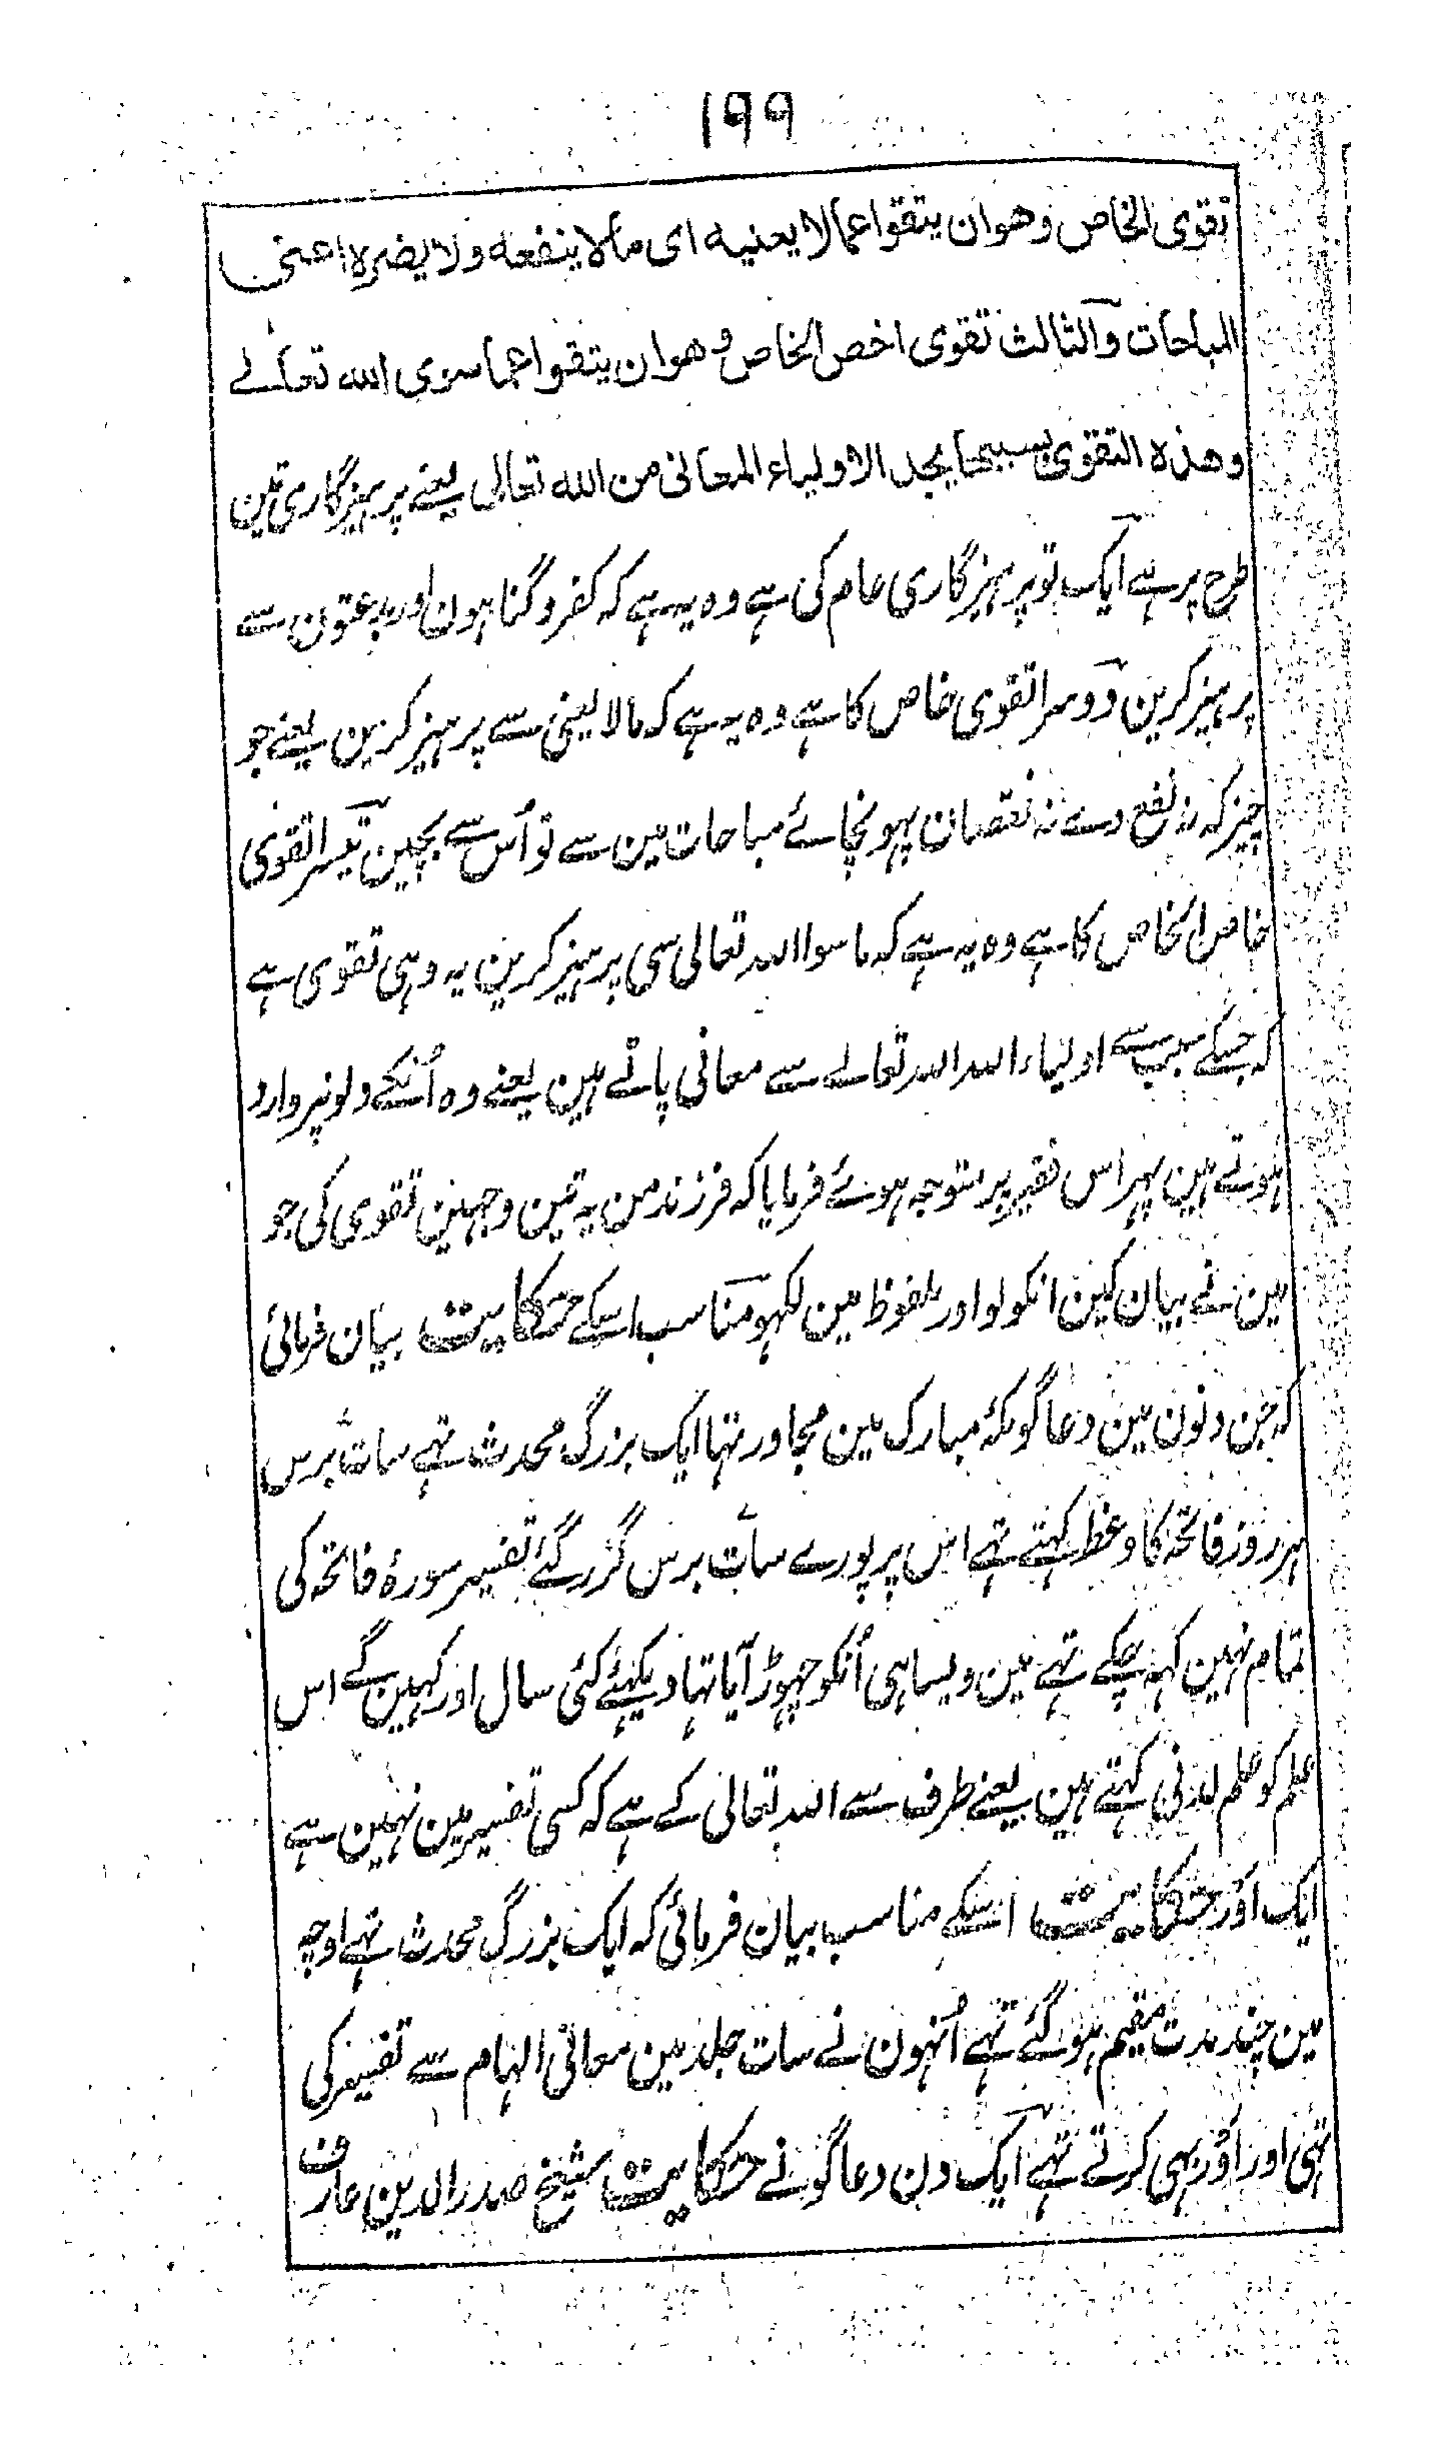 ۱۹۹
تقوی الخاص وهوان یتقوا عمالا یعنیه ای مالا ینفعه ولا یضره اعنی
المباحات والثالث تقوی اخص الخاص وهوان یتقوا عما سوی الله تعالے
وهذه التقوی بسببها یجد الاولیاء المعانی من الله تعالی یعنے پرہیزگاری تین
طرح پر ہے ایک تو پرہیزگاری عام کی ہے وہ یہ ہے کہ کفر و گناہون اور بدعتون سے
پرہیز کرین دوسرا تقوی خاص کا ہے وہ یہ ہے کہ مالا یعنی سے پرہیز کرین یعنے جو
چیز کہ نہ نفع دے نہ نقصان پہونچائے مباحات مین سے تو اُس سے بچین تیسرا تقوی
خاص الخاص کا ہے وہ یہ ہے کہ ماسوا اللہ تعالی سی پرہیز کرین یہ وہی تقوی ہے
کہ جسکے سبب سے اولیاء اللہ اللہ تعالے سے معانی پاتے ہین یعنے وہ اُنکے دلونپر وارد
ہوتے ہین پہر اس فقیر پر متوجہ ہوئے فرمایا کہ فرزند من یہ تین وجہین تقوی کی جو
مین نے بیان کین انکو لو اور ملفوظ مین لکہو مناسب اسکے حکایت بیان فرمائی
کہ جن دنون مین دعاگو مکۂ مبارک مین مجاور تہا ایک بزرگ محدث تہے سات برس
ہر روز فاتحہ کا وعظ کہتے تہے اس پر پورے سات برس گزر گئے تفسیر سورۂ فاتحہ کی
تمام نہین کہہ چکے تہے مین ویسا ہی اُنکو چہوڑ آیا تہا دیکہئے کئی سال اور کہین گے اس
علم کو علم لدنی کہتے ہین یعنے طرف سے اللہ تعالی کے ہے کہ کسی تفسیر مین نہین ہے
ایک اَور حکایت اسکے مناسب بیان فرمائی کہ ایک بزرگ محدث تہے اوچہ
مین چند مدت مقیم ہو گئے تہے اُنہون نے سات جلد مین معانی الہام سے تفسیر کی
تہی اور اَور بہی کرتے تہے ایک دن دعاگو نے حکایت شیخ صدر الدین عارف